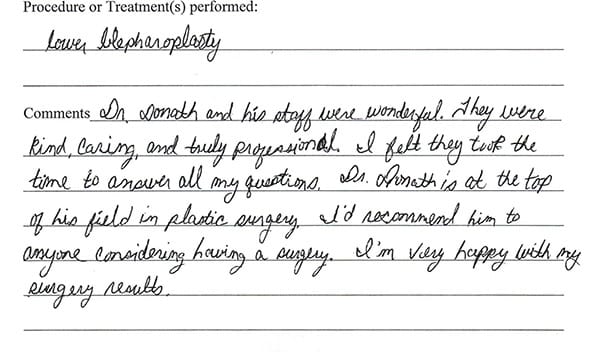 Procedure or Treatment(s) performed:
lower blepharoplasty
Comments Dr. Donath and his staff were wonderful. They were
kind, caring, and truly professional. I felt they took the
time to answer all my questions. Dr. Donath is at the top
of his field in plastic surgery. I'd recommend him to
anyone considering having a surgery. I'm very happy with my
surgery results.